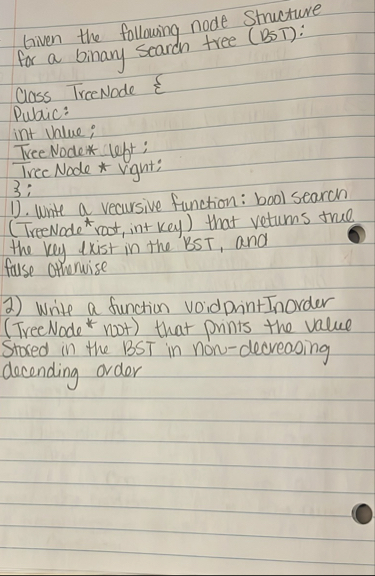 Given the following node Structure
for a binary search tree (BST):
Class TreeNode {
Public:
int Value;
TreeNode* left;
TreeNode * right;
};
1). Write a recursive function: bool search
(TreeNode* root, int key) that returns true
the key exist in the BST, and
false otherwise
2) Write a function void printInorder
(TreeNode* root) that prints the value
Stored in the BST in non-decreasing
decending order